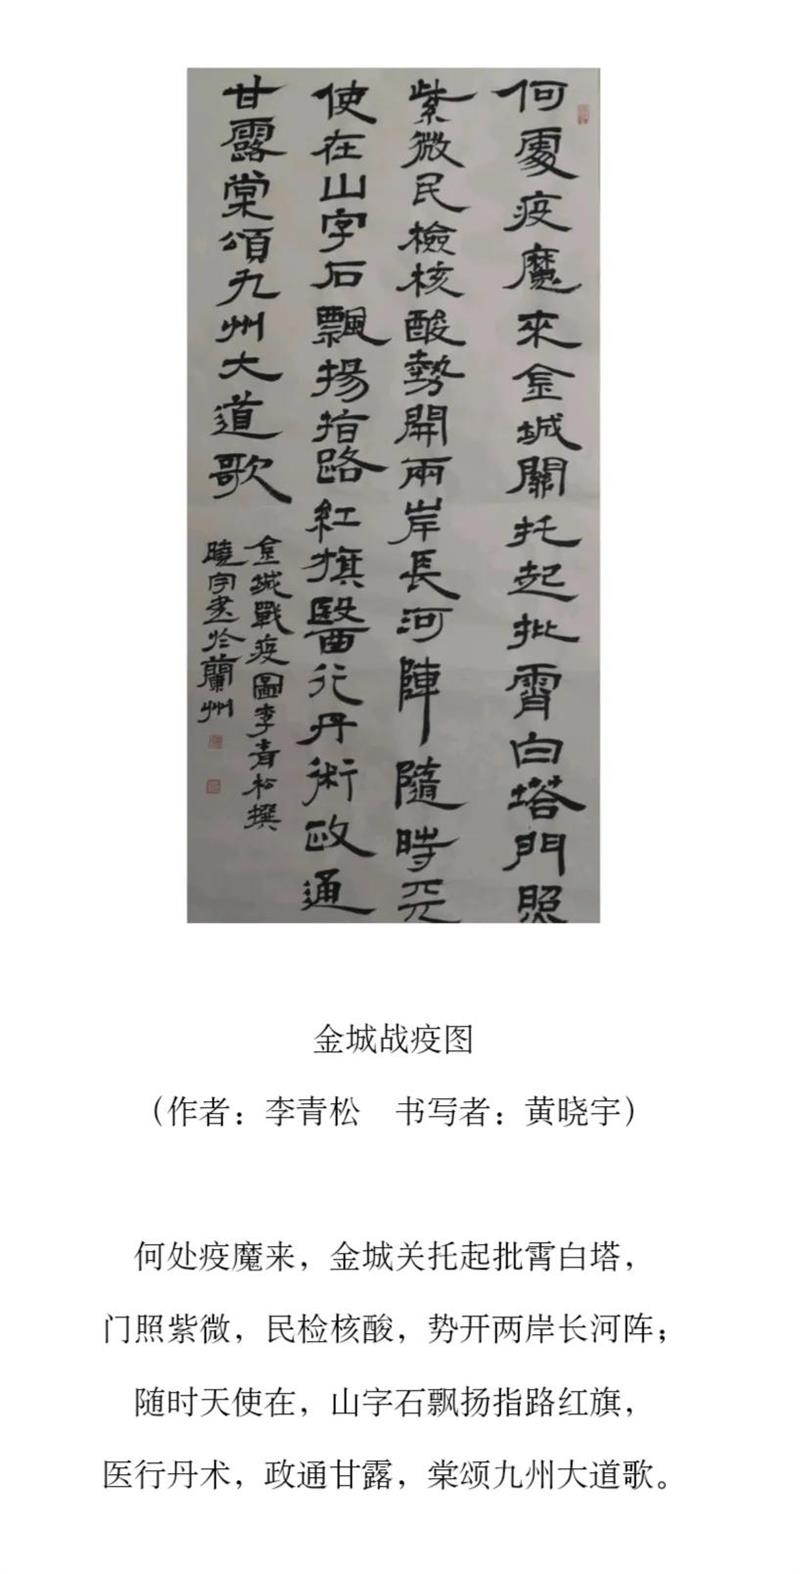 何處疫魔來金城關托起批霄白塔門照
紫微民檢核酸勢開兩岸長河陣隨時天
使在山字石飄揚指路紅旗醫行丹術政通
甘露棠頌九州大道歌
金城戰疫圖李青松撰
曉宇書於蘭州
金城战疫图
（作者：李青松　书写者：黄晓宇）
何处疫魔来，金城关托起批霄白塔，
门照紫微，民检核酸，势开两岸长河阵；
随时天使在，山字石飘扬指路红旗，
医行丹术，政通甘露，棠颂九州大道歌。